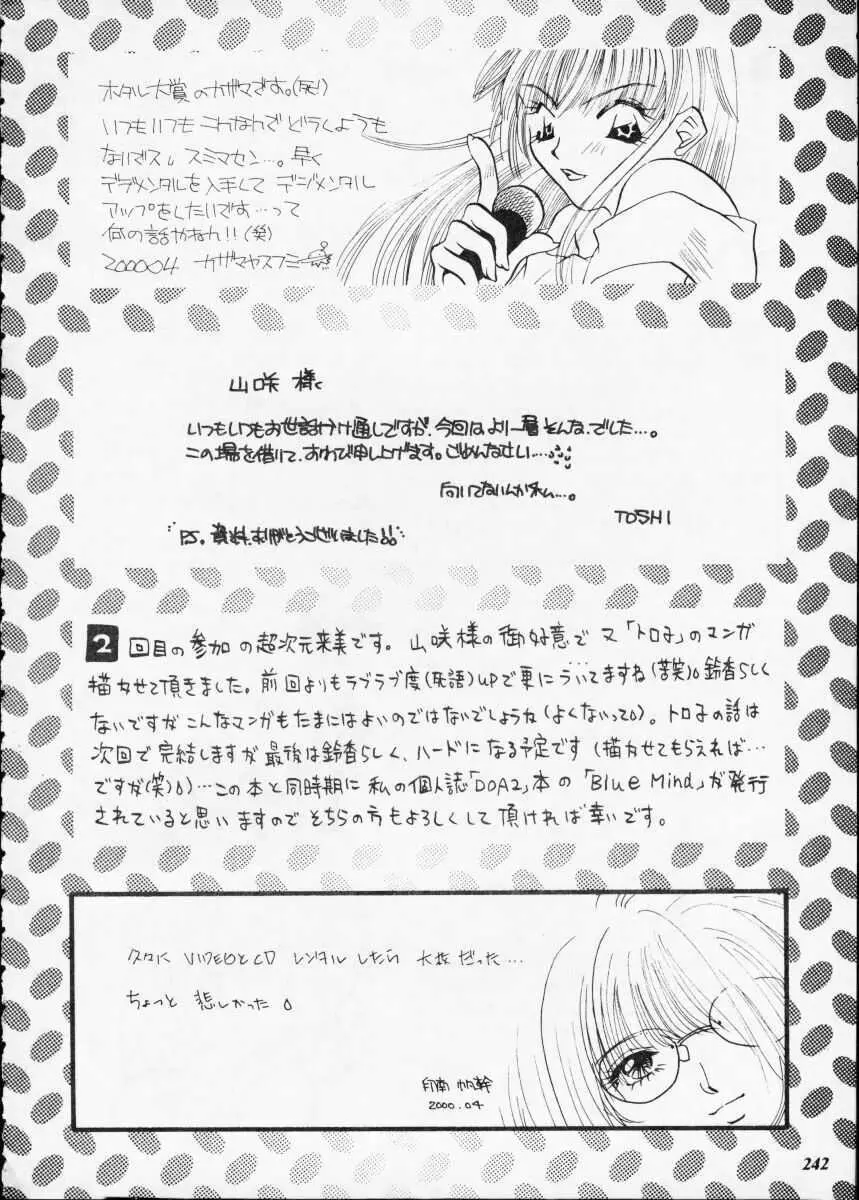 ホタル大賞のカザマです。(死)
いつもいつもこんなんでどうしようも
ないデス。スミマセン…。早く
デジメンタルを入手して デジメンタル
アップをしたいです…って
何の話かなれ!!(笑)
200004 カザマヤスフミ
山咲 様
いつもいつもお世話かけ通しですが、今回はより一層そんな、でした…。
この場を借りて、おわび申し上げます。ごめんなさい…
向いてないんかねん…。
TOSHI
PS. 資料、ありがとうございました!!
2回目の参加の超次元来美です。山咲様の御好意で又「トロ子」のマンガ
描かせて頂きました。前回よりもラブラブ度(死語)UPで更にういてますね(苦笑)。鈴香らしく
ないですがこんなマンガもたまにはよいのではないでしょうね(よくないって)。トロ子の話は
次回で完結しますが最後は鈴香らしく、ハードになる予定です(描かせてもらえれば…
ですが(笑))…この本と同時期に私の個人誌「DOA2」本の「Blue Mind」が発行
されていると思いますのでそちらの方もよろしくして頂ければ幸いです。
久々に VIDEOとCD レンタル したら 大塚だった…
ちょっと 悲しかった。
印南 帆幹
2000.04
242